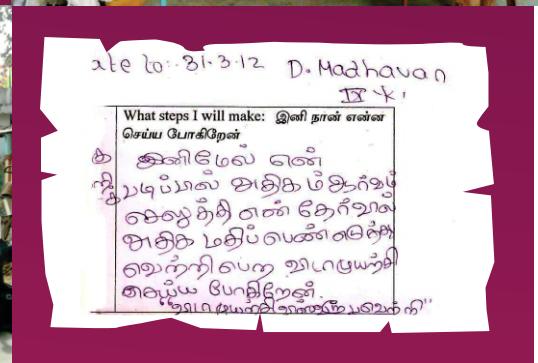 ate to:- 31.3.12 D. Madhavan
IX 'K'
What steps I will make: இனி நான் என்ன
செய்ய போகிறேன்
இனிமேல் என்
படிப்பில் அதிகம் ஆர்வம்
செலுத்தி என் தேர்வில்
அதிக மதிப்பெண் எடுத்து
வெற்றி பெற விடாமுயற்சி
செய்ய போகிறேன்.
"விடாமுயற்சி வெற்றி"